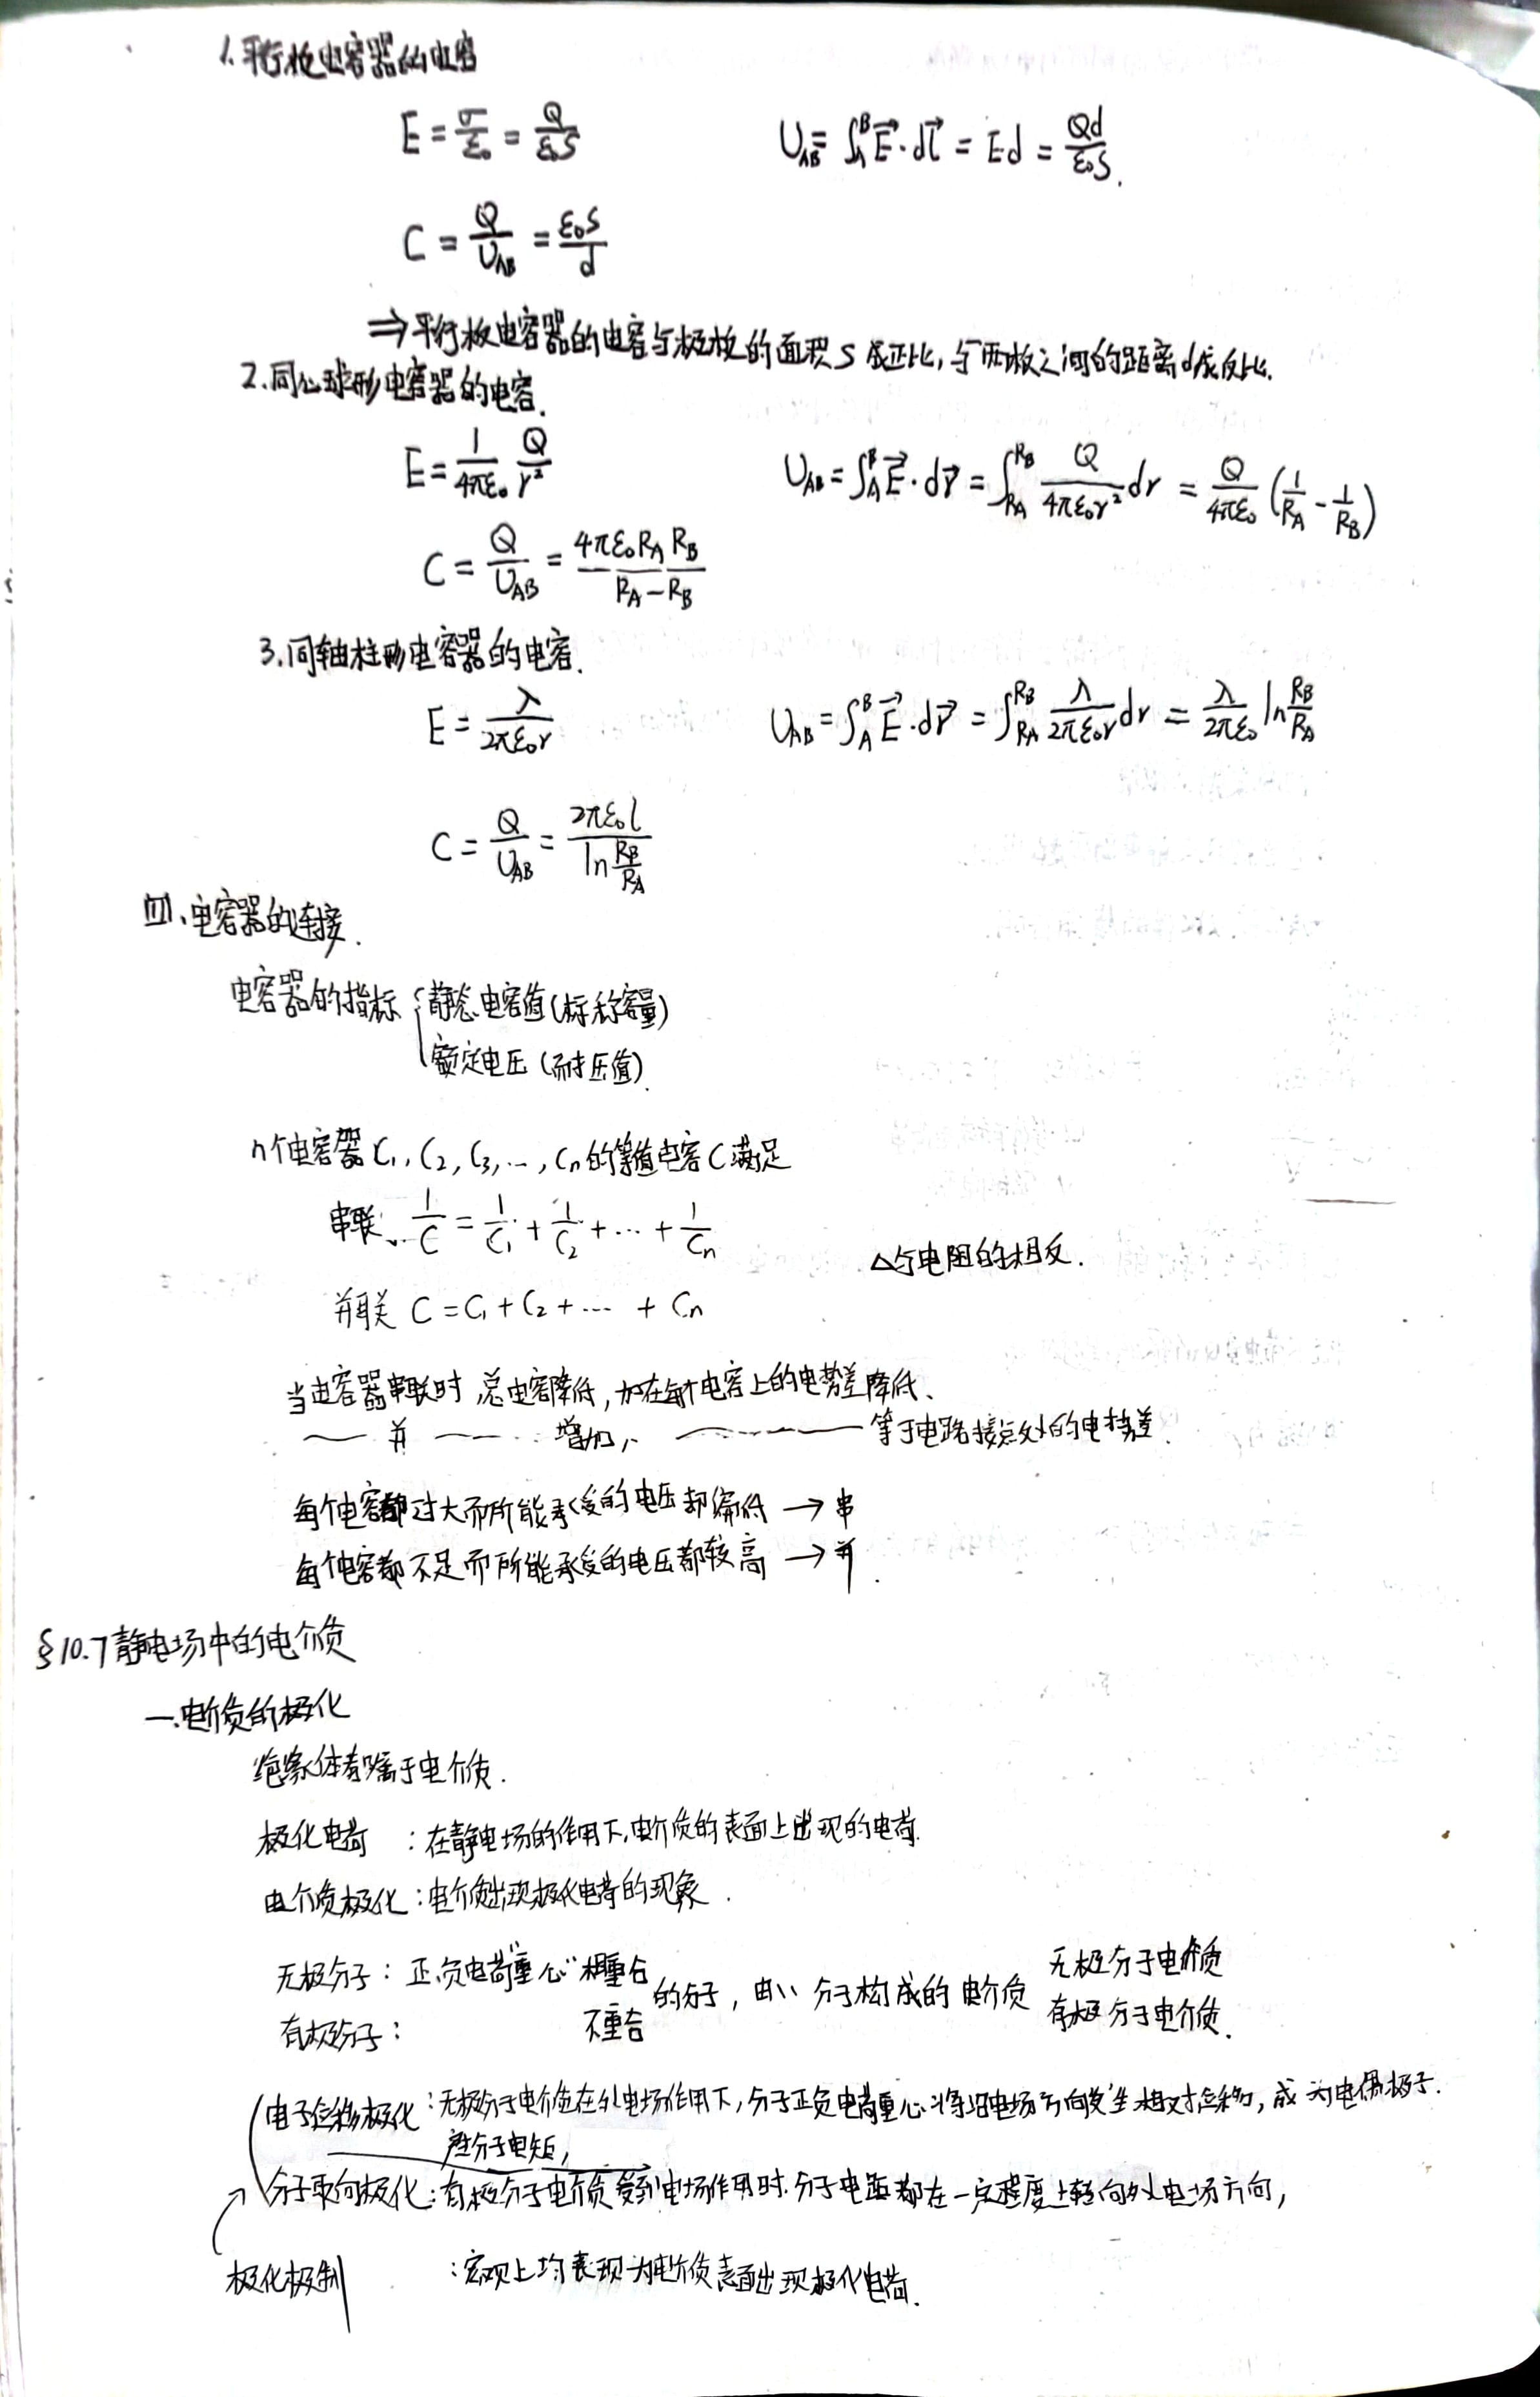 1.平行板电容器的电容
E = σ/ε₀ = Q/ε₀S U_AB = ∫_A^B E⃗·dl⃗ = Ed = Qd/ε₀S.
C = Q/U_AB = ε₀S/d
⇒平行板电容器的电容与极板的面积S成正比,与两板之间的距离d成反比.
2.同心球形电容器的电容.
E = 1/4πε₀ Q/r² U_AB = ∫_A^B E⃗·dr⃗ = ∫_{R_A}^{R_B} Q/4πε₀r² dr = Q/4πε₀ (1/R_A - 1/R_B)
C = Q/U_AB = 4πε₀R_A R_B/R_A-R_B
3.同轴柱形电容器的电容.
E = λ/2πε₀r U_AB = ∫_A^B E⃗·dr⃗ = ∫_{R_A}^{R_B} λ/2πε₀r dr = λ/2πε₀ ln R_B/R_A
C = Q/U_AB = 2πε₀l/ln R_B/R_A
四、电容器的连接.
电容器的指标 { 静态电容值(标称容量)
额定电压 (耐压值).
n个电容器C₁, C₂, C₃, ..., Cn的等值电容C满足
串联 1/C = 1/C₁ + 1/C₂ + ... + 1/Cn
△与电阻的相反.
并联 C = C₁ + C₂ + ... + Cn
当电容器串联时,总电容降低,加在每个电容上的电势差降低、
—— 并 —— 增加, ——— 等于电路接点处的电势差.
每个电容都过大而所能承受的电压都偏低 → 串
每个电容都不足而所能承受的电压都较高 → 并.
§10.7静电场中的电介质
一.电介质的极化
绝缘体都属于电介质.
极化电荷 :在静电场的作用下,电介质的表面上出现的电荷.
电介质极化:电介质出现极化电荷的现象.
无极分子: 正负电荷“重心”相重合 的分子, 由\\ 分子构成的 电介质 无极分子电介质
有极分子: 不重合 有极分子电介质.
电子位移极化:无极分子电介质在外电场作用下,分子正负电荷重心将沿电场方向发生相对位移, 成为电偶极子.
产生分子电矩,
分子取向极化:有极分子电介质受到电场作用时.分子电矩都在一定程度上转向外电场方向,
极化极制 :宏观上均表现为电介质表面出现极化电荷.